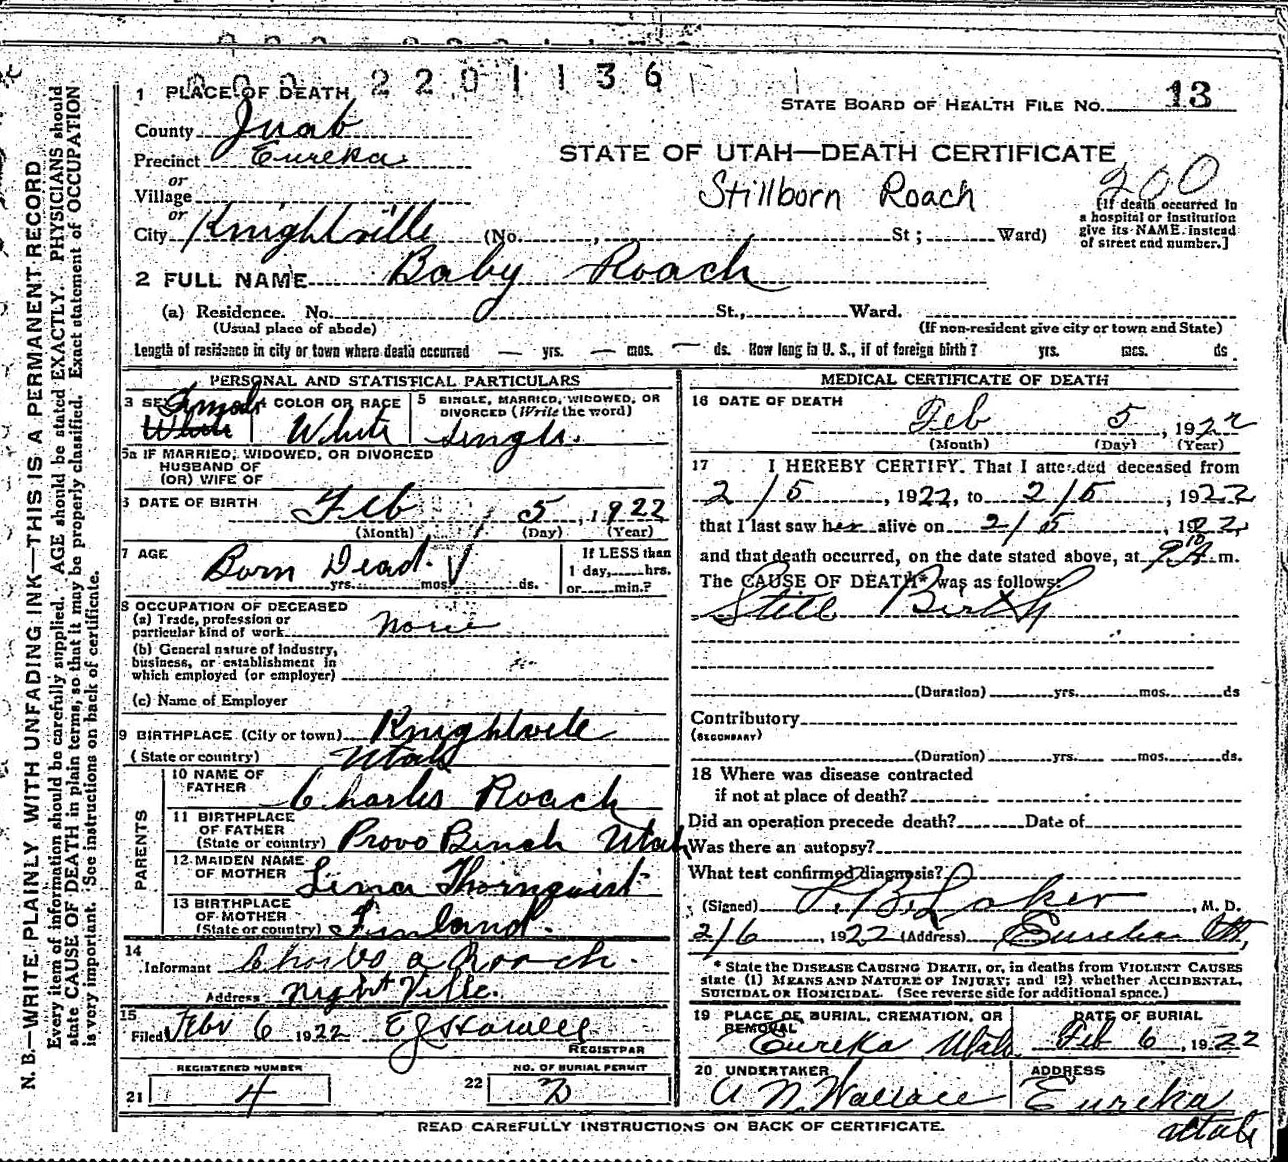 2201136
1 PLACE OF DEATH
STATE BOARD OF HEALTH FILE NO. 13
County Juab
Precinct Eureka
STATE OF UTAH—DEATH CERTIFICATE
or
Village
Stillborn Roach
200
[If death occurred in a hospital or institution give its NAME instead of street end number.]
or
City Knightville (No. , St; Ward)
2 FULL NAME Baby Roach
(a) Residence. No. St., Ward.
(Usual place of abode) (If non-resident give city or town and State)
Length of residence in city or town where death occurred — yrs. — mos. — ds. How long in U. S., if of foreign birth? yrs. mos. ds.
N. B.—WRITE PLAINLY WITH UNFADING INK—THIS IS A PERMANENT RECORD
Every item of information should be carefully supplied. AGE should be stated EXACTLY. PHYSICIANS should
state CAUSE OF DEATH in plain terms, so that it may be properly classified. Exact statement of OCCUPATION
is very important. See instructions on back of certificate.
PERSONAL AND STATISTICAL PARTICULARS
3 SEX White
4 COLOR OR RACE White
5 SINGLE, MARRIED, WIDOWED, OR DIVORCED (Write the word) Single.
5a IF MARRIED, WIDOWED, OR DIVORCED
HUSBAND OF
(OR) WIFE OF
6 DATE OF BIRTH Feb 5, 1922
(Month) (Day) (Year)
7 AGE Born Dead.
yrs. mos. ds.
If LESS than
1 day, hrs.
or min.?
8 OCCUPATION OF DECEASED
(a) Trade, profession or
particular kind of work None
(b) General nature of industry,
business, or establishment in
which employed (or employer)
(c) Name of Employer
9 BIRTHPLACE (City or town) Knightvile
(State or country) Utah
PARENTS
10 NAME OF FATHER Charles Roach
11 BIRTHPLACE OF FATHER (State or country) Provo Bench Utah
12 MAIDEN NAME OF MOTHER Lima Thornquist
13 BIRTHPLACE OF MOTHER (State or country) Finland.
14 Informant Charles a Roach.
Address Night Ville.
15 Filed Febr 6 1922 E J Howell
REGISTRAR
REGISTERED NUMBER
21 4
NO. OF BURIAL PERMIT
22 2
MEDICAL CERTIFICATE OF DEATH
16 DATE OF DEATH Feb 5, 1922
(Month) (Day) (Year)
17 I HEREBY CERTIFY. That I attended deceased from
2/5, 1922, to 2/5, 1922
that I last saw her alive on 2/5, 1922,
and that death occurred, on the date stated above, at 9 10 A m.
The CAUSE OF DEATH* was as follows:
Still Birth
(Duration) yrs. mos. ds
Contributory
(SECONDARY)
(Duration) yrs. mos. ds.
18 Where was disease contracted
if not at place of death?
Did an operation precede death? Date of
Was there an autopsy?
What test confirmed diagnosis?
(Signed) , M. D.
2/6, 1922 (Address) Eureka Ut,
* State the DISEASE CAUSING DEATH, or, in deaths from VIOLENT CAUSES
state (1) MEANS AND NATURE OF INJURY; and (2) whether ACCIDENTAL,
SUICIDAL OR HOMICIDAL. (See reverse side for additional space.)
19 PLACE OF BURIAL, CREMATION, OR REMOVAL Eureka Utah
DATE OF BURIAL Feb 6, 1922
20 UNDERTAKER A N Wallace
ADDRESS Eureka Utah
READ CAREFULLY INSTRUCTIONS ON BACK OF CERTIFICATE.